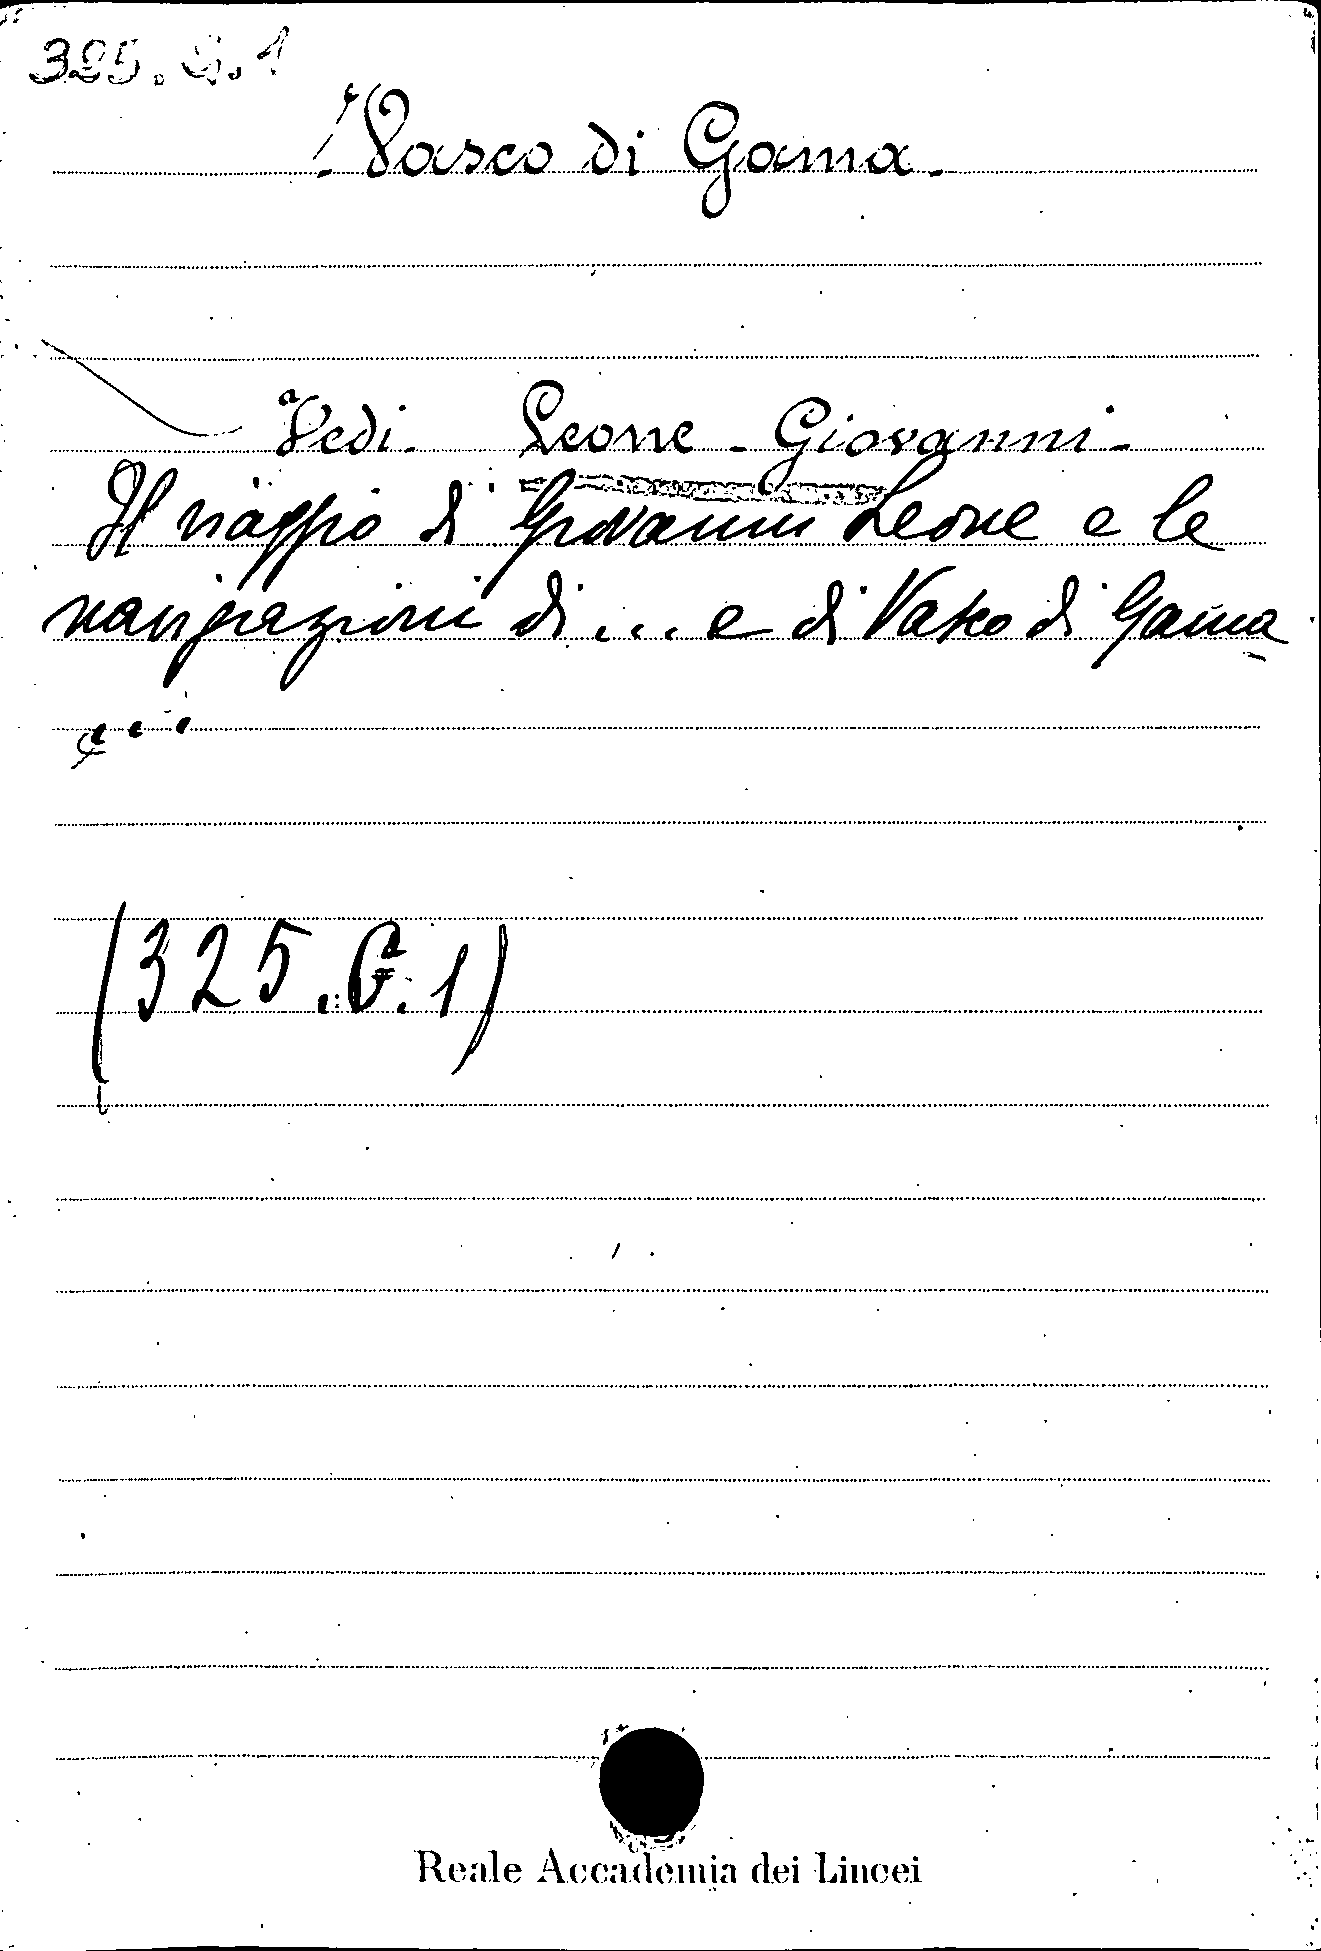 325.G.1
Vasco di Gama.
Vedi. Leone - Giovanni -
Il viaggio di Giovanni Leone e le
navigazioni di .... e di Vasco di Gama
...
(325.G.1)
Reale Accademia dei Lincei